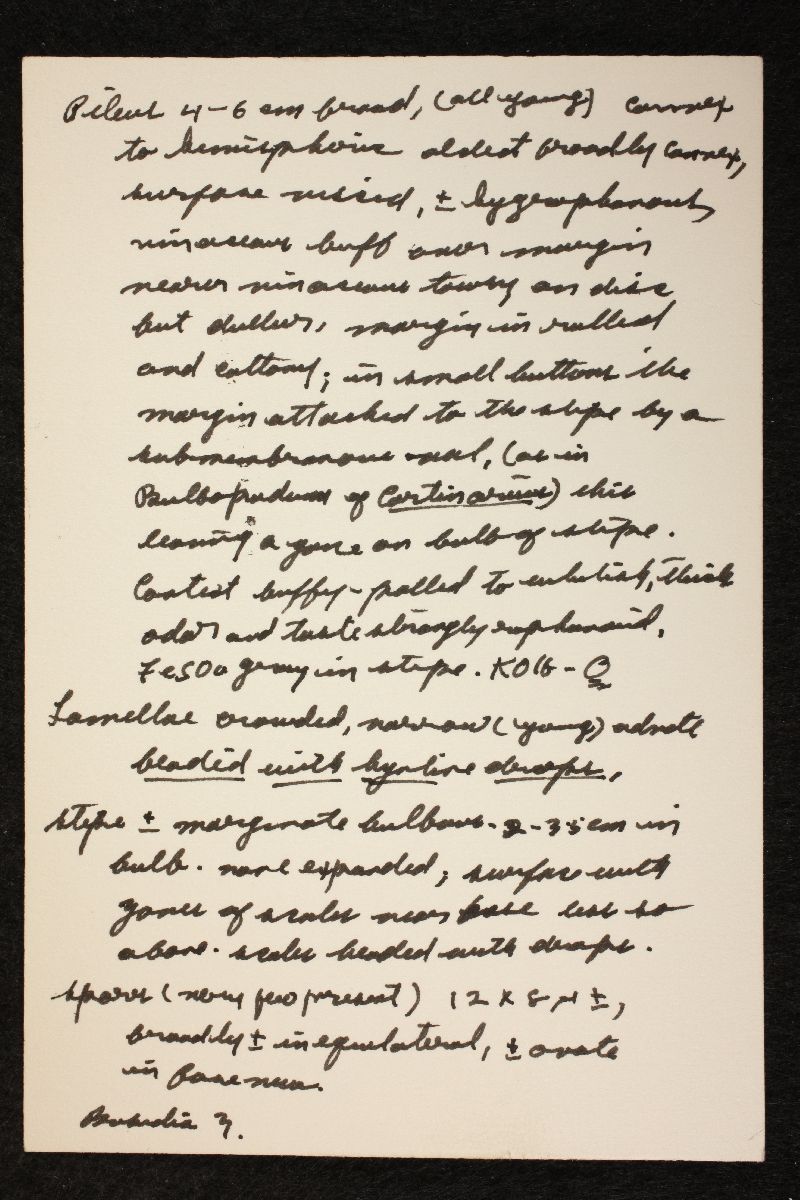 Pileus 4-6 cm broad, (all young) convex
to hemispheric oldest broadly convex,
surface viscid, ± hygrophanous,
vinaceous buff over margin
nearer vinaceous tawny on disc
but duller, margin inrolled
and cottony; in small buttons the
margin attached to the stipe by a
submembranous veil, (as in
Bulbopodium of Cortinarius) this
leaving a zone on bulb of stipe.
Context buffy-palled to whitish, thick
odor and taste strongly raphanoid,
FeSO4 gray in stipe. KOH - O
Lamellae crowded, narrow (young) adnate
beaded with hyaline drops,
stipe ± marginate bulbous. 2-3.5 cm in
bulb. none expanded; surface with
zones of scales near base less so
above. scales beaded with drops.
spores (very few present) 12 x 8 µ ±,
broadly ± inequilateral, ± ovate
in face view.
Basidia